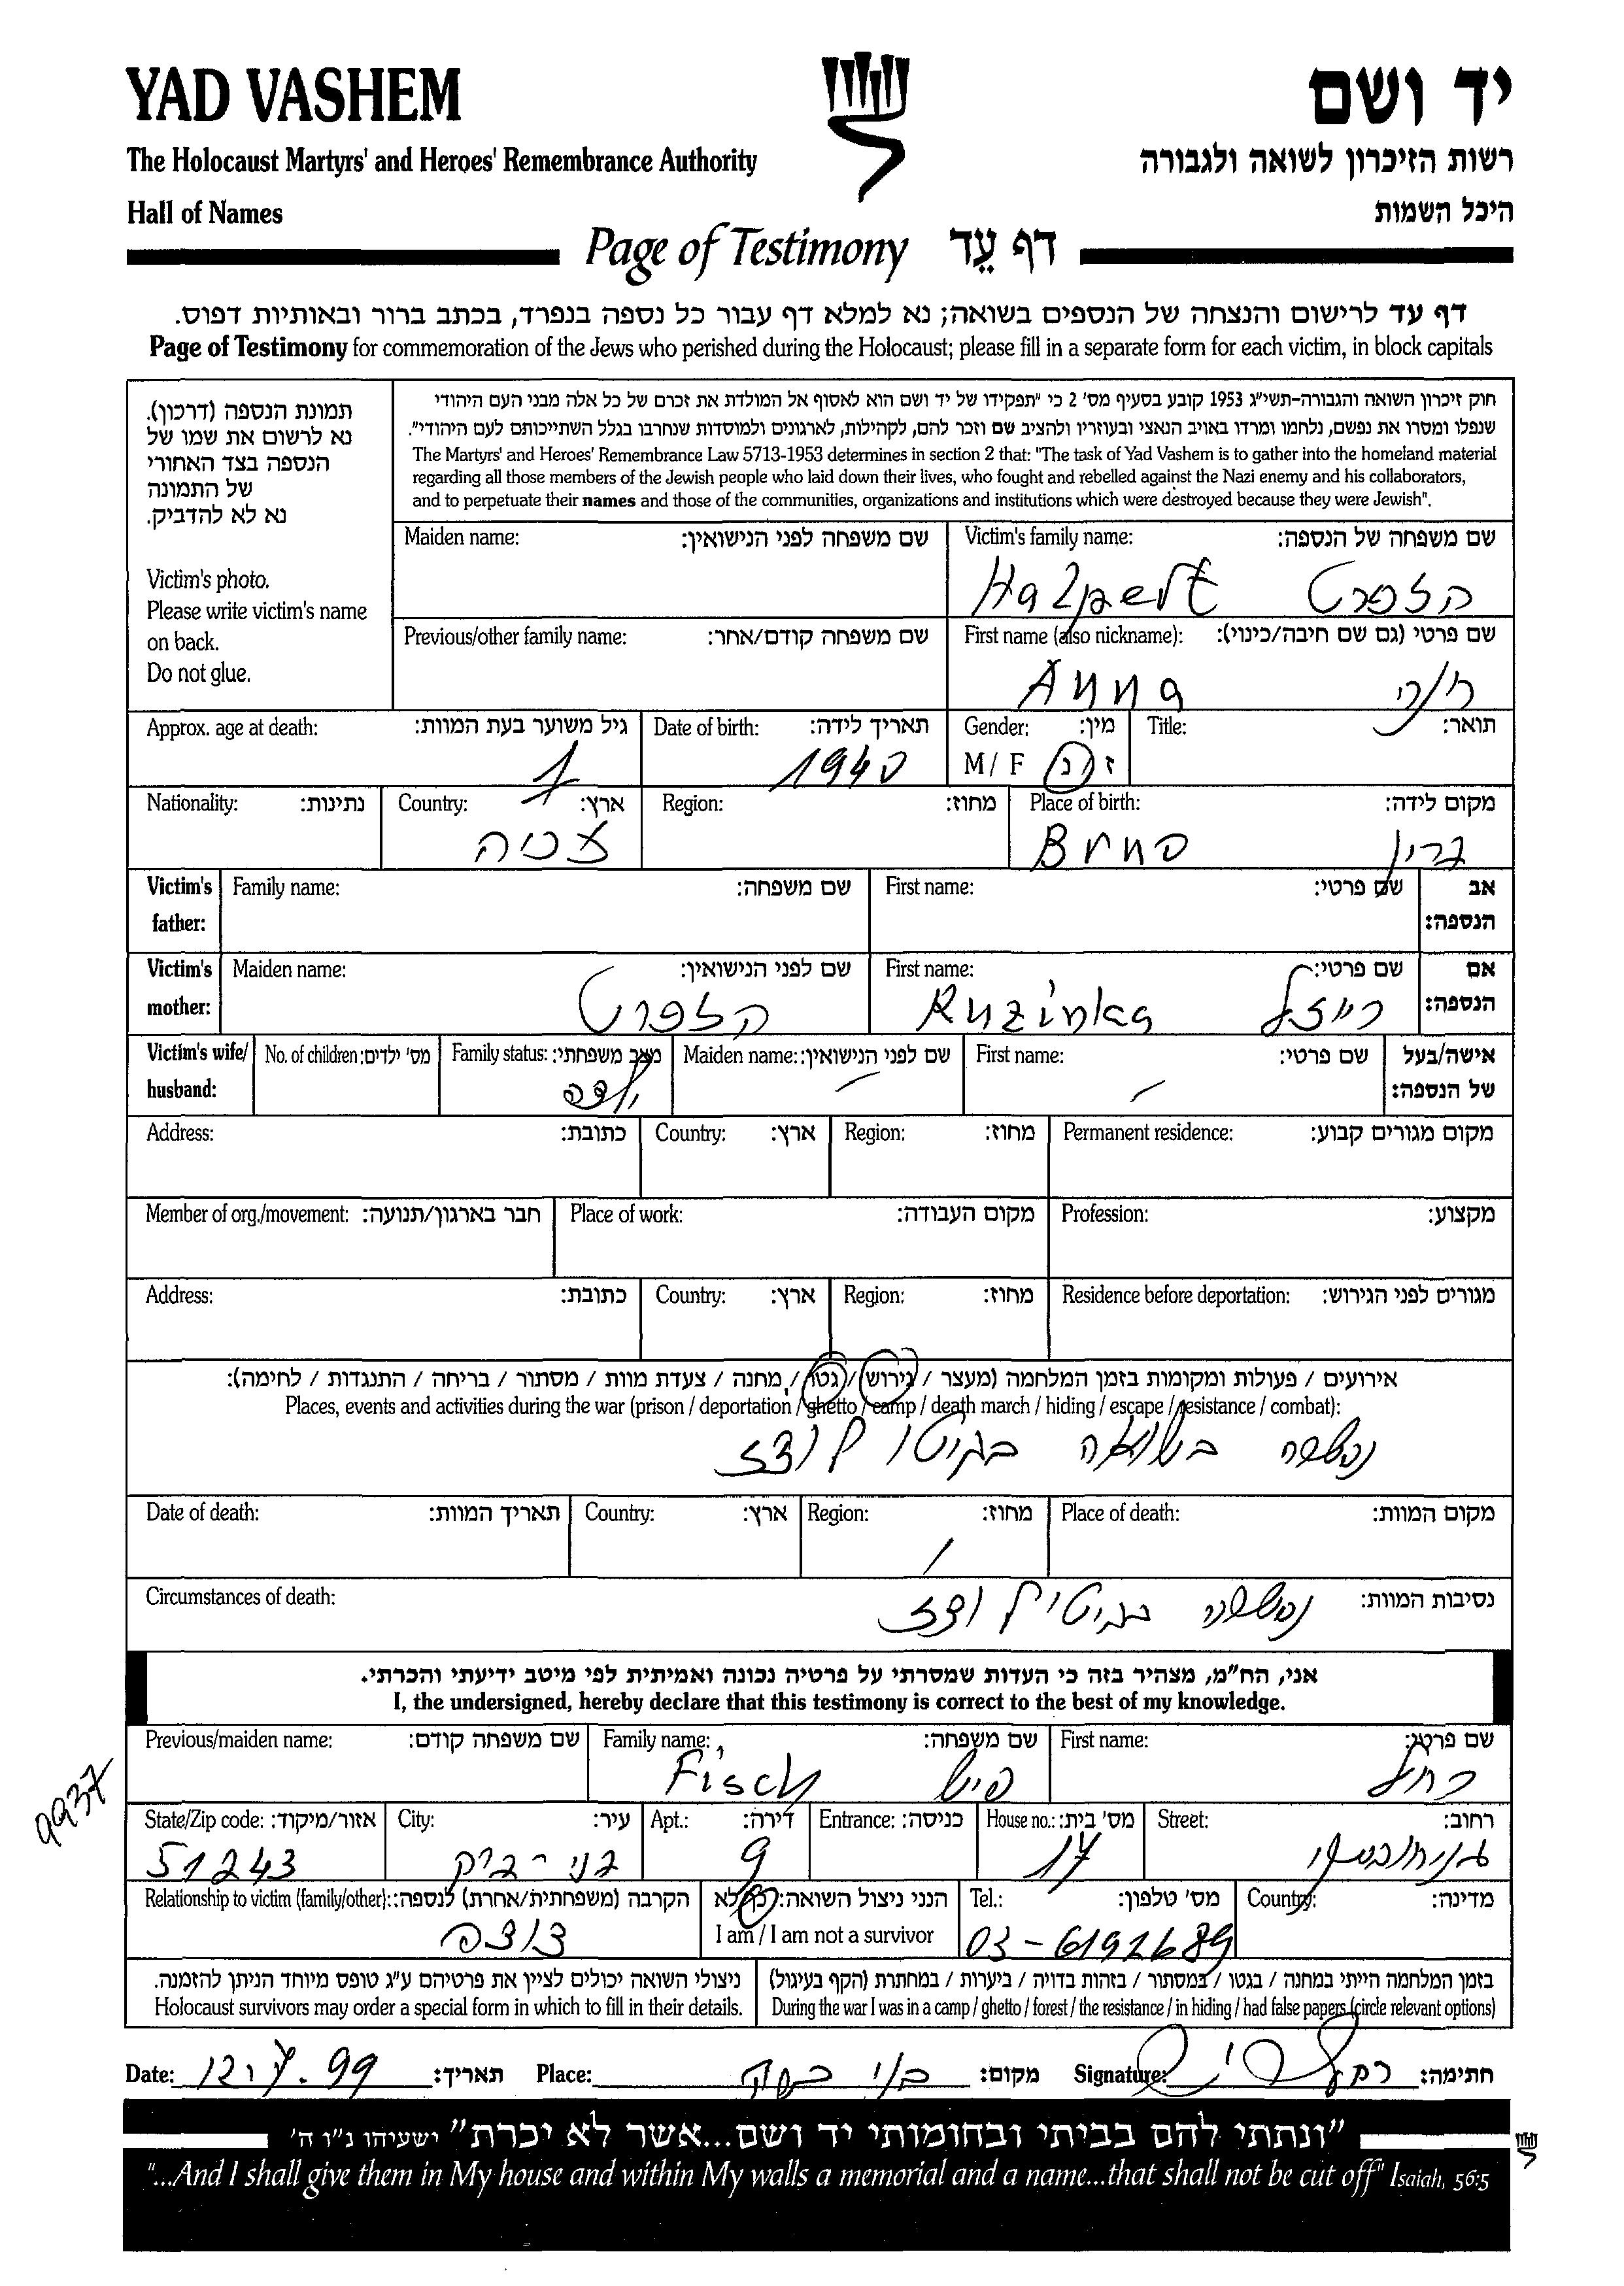 YAD VASHEM
יד ושם
The Holocaust Martyrs' and Heroes' Remembrance Authority
רשות הזיכרון לשואה ולגבורה
Hall of Names
היכל השמות
Page of Testimony דף עֵד
דף עד לרישום והנצחה של הנספים בשואה; נא למלא דף עבור כל נספה בנפרד, בכתב ברור ובאותיות דפוס.
Page of Testimony for commemoration of the Jews who perished during the Holocaust; please fill in a separate form for each victim, in block capitals
תמונת הנספה (דרכון).
נא לרשום את שמו של
הנספה בצד האחורי
של התמונה
נא לא להדביק.
Victim's photo.
Please write victim's name
on back.
Do not glue.
חוק זיכרון השואה והגבורה-תשי"ג 1953 קובע בסעיף מס' 2 כי "תפקידו של יד ושם הוא לאסוף אל המולדת את זכרם של כל אלה מבני העם היהודי
שנפלו ומסרו את נפשם, נלחמו ומרדו באויב הנאצי ובעוזריו ולהציב שם וזכר להם, לקהילות, לארגונים ולמוסדות שנחרבו בגלל השתייכותם לעם היהודי".
The Martyrs' and Heroes' Remembrance Law 5713-1953 determines in section 2 that: "The task of Yad Vashem is to gather into the homeland material
regarding all those members of the Jewish people who laid down their lives, who fought and rebelled against the Nazi enemy and his collaborators,
and to perpetuate their names and those of the communities, organizations and institutions which were destroyed because they were Jewish".
Maiden name: שם משפחה לפני הנישואין: Victim's family name: שם משפחה של הנספה:
Halpert הלפרט
Previous/other family name: שם משפחה קודם/אחר: First name (also nickname): שם פרטי (גם שם חיבה/כינוי):
Anna חנה
Approx. age at death: גיל משוער בעת המוות: Date of birth: תאריך לידה: Gender: מין: Title: תואר:
1 1940 M / F ז / נ
Nationality: נתינות: Country: ארץ: Region: מחוז: Place of birth: מקום לידה:
צכיה Brno ברין
Victim's father: Family name: שם משפחה: First name: שם פרטי: אב הנספה:
Victim's mother: Maiden name: שם לפני הנישואין: First name: שם פרטי: אם הנספה:
הלפרט Ruzinka רייזל
Victim's wife/ husband: No. of children: מס' ילדים: Family status: מצב משפחתי: Maiden name: שם לפני הנישואין: First name: שם פרטי: אישה/בעל של הנספה:
ילדה – –
Address: כתובת: Country: ארץ: Region: מחוז: Permanent residence: מקום מגורים קבוע:
Member of org./movement: חבר בארגון/תנועה: Place of work: מקום העבודה: Profession: מקצוע:
Address: כתובת: Country: ארץ: Region: מחוז: Residence before deportation: מגורים לפני הגירוש:
אירועים / פעולות ומקומות בזמן המלחמה (מעצר / גירוש / גטו / מחנה / צעדת מוות / מסתור / בריחה / התנגדות / לחימה):
Places, events and activities during the war (prison / deportation / ghetto / camp / death march / hiding / escape / resistance / combat):
נפטרה בשואה בגיטו לודז
Date of death: תאריך המוות: Country: ארץ: Region: מחוז: Place of death: מקום המוות:
Circumstances of death: נסיבות המוות:
נפטרה בגיטו לודז
אני, הח"מ, מצהיר בזה כי העדות שמסרתי על פרטיה נכונה ואמיתית לפי מיטב ידיעתי והכרתי.
I, the undersigned, hereby declare that this testimony is correct to the best of my knowledge.
Previous/maiden name: שם משפחה קודם: Family name: שם משפחה: First name: שם פרטי:
Fisch פיש רחל
9937
State/Zip code: אזור/מיקוד: City: עיר: Apt.: דירה: Entrance: כניסה: House no.: מס' בית: Street: רחוב:
51243 בני-ברק 9 17
Relationship to victim (family/other): הקרבה (משפחתית/אחרת) לנספה: הנני ניצול השואה: כן/לא Tel.: מס' טלפון: Country: מדינה:
דודה I am / I am not a survivor 03-6192689
ניצולי השואה יכולים לציין את פרטיהם ע"ג טופס מיוחד הניתן להזמנה.
Holocaust survivors may order a special form in which to fill in their details.
בזמן המלחמה הייתי במחנה / בגטו / במסתור / בזהות בדויה / ביערות / במחתרת (הקף בעיגול)
During the war I was in a camp / ghetto / forest / the resistance / in hiding / had false papers (circle relevant options)
Date: 12.7.99 תאריך: Place: בני ברק מקום: Signature: רחל פיש חתימה:
"ונתתי להם בביתי ובחומותי יד ושם...אשר לא יכרת" ישעיהו נ"ו ה'
"...And I shall give them in My house and within My walls a memorial and a name...that shall not be cut off" Isaiah, 56:5